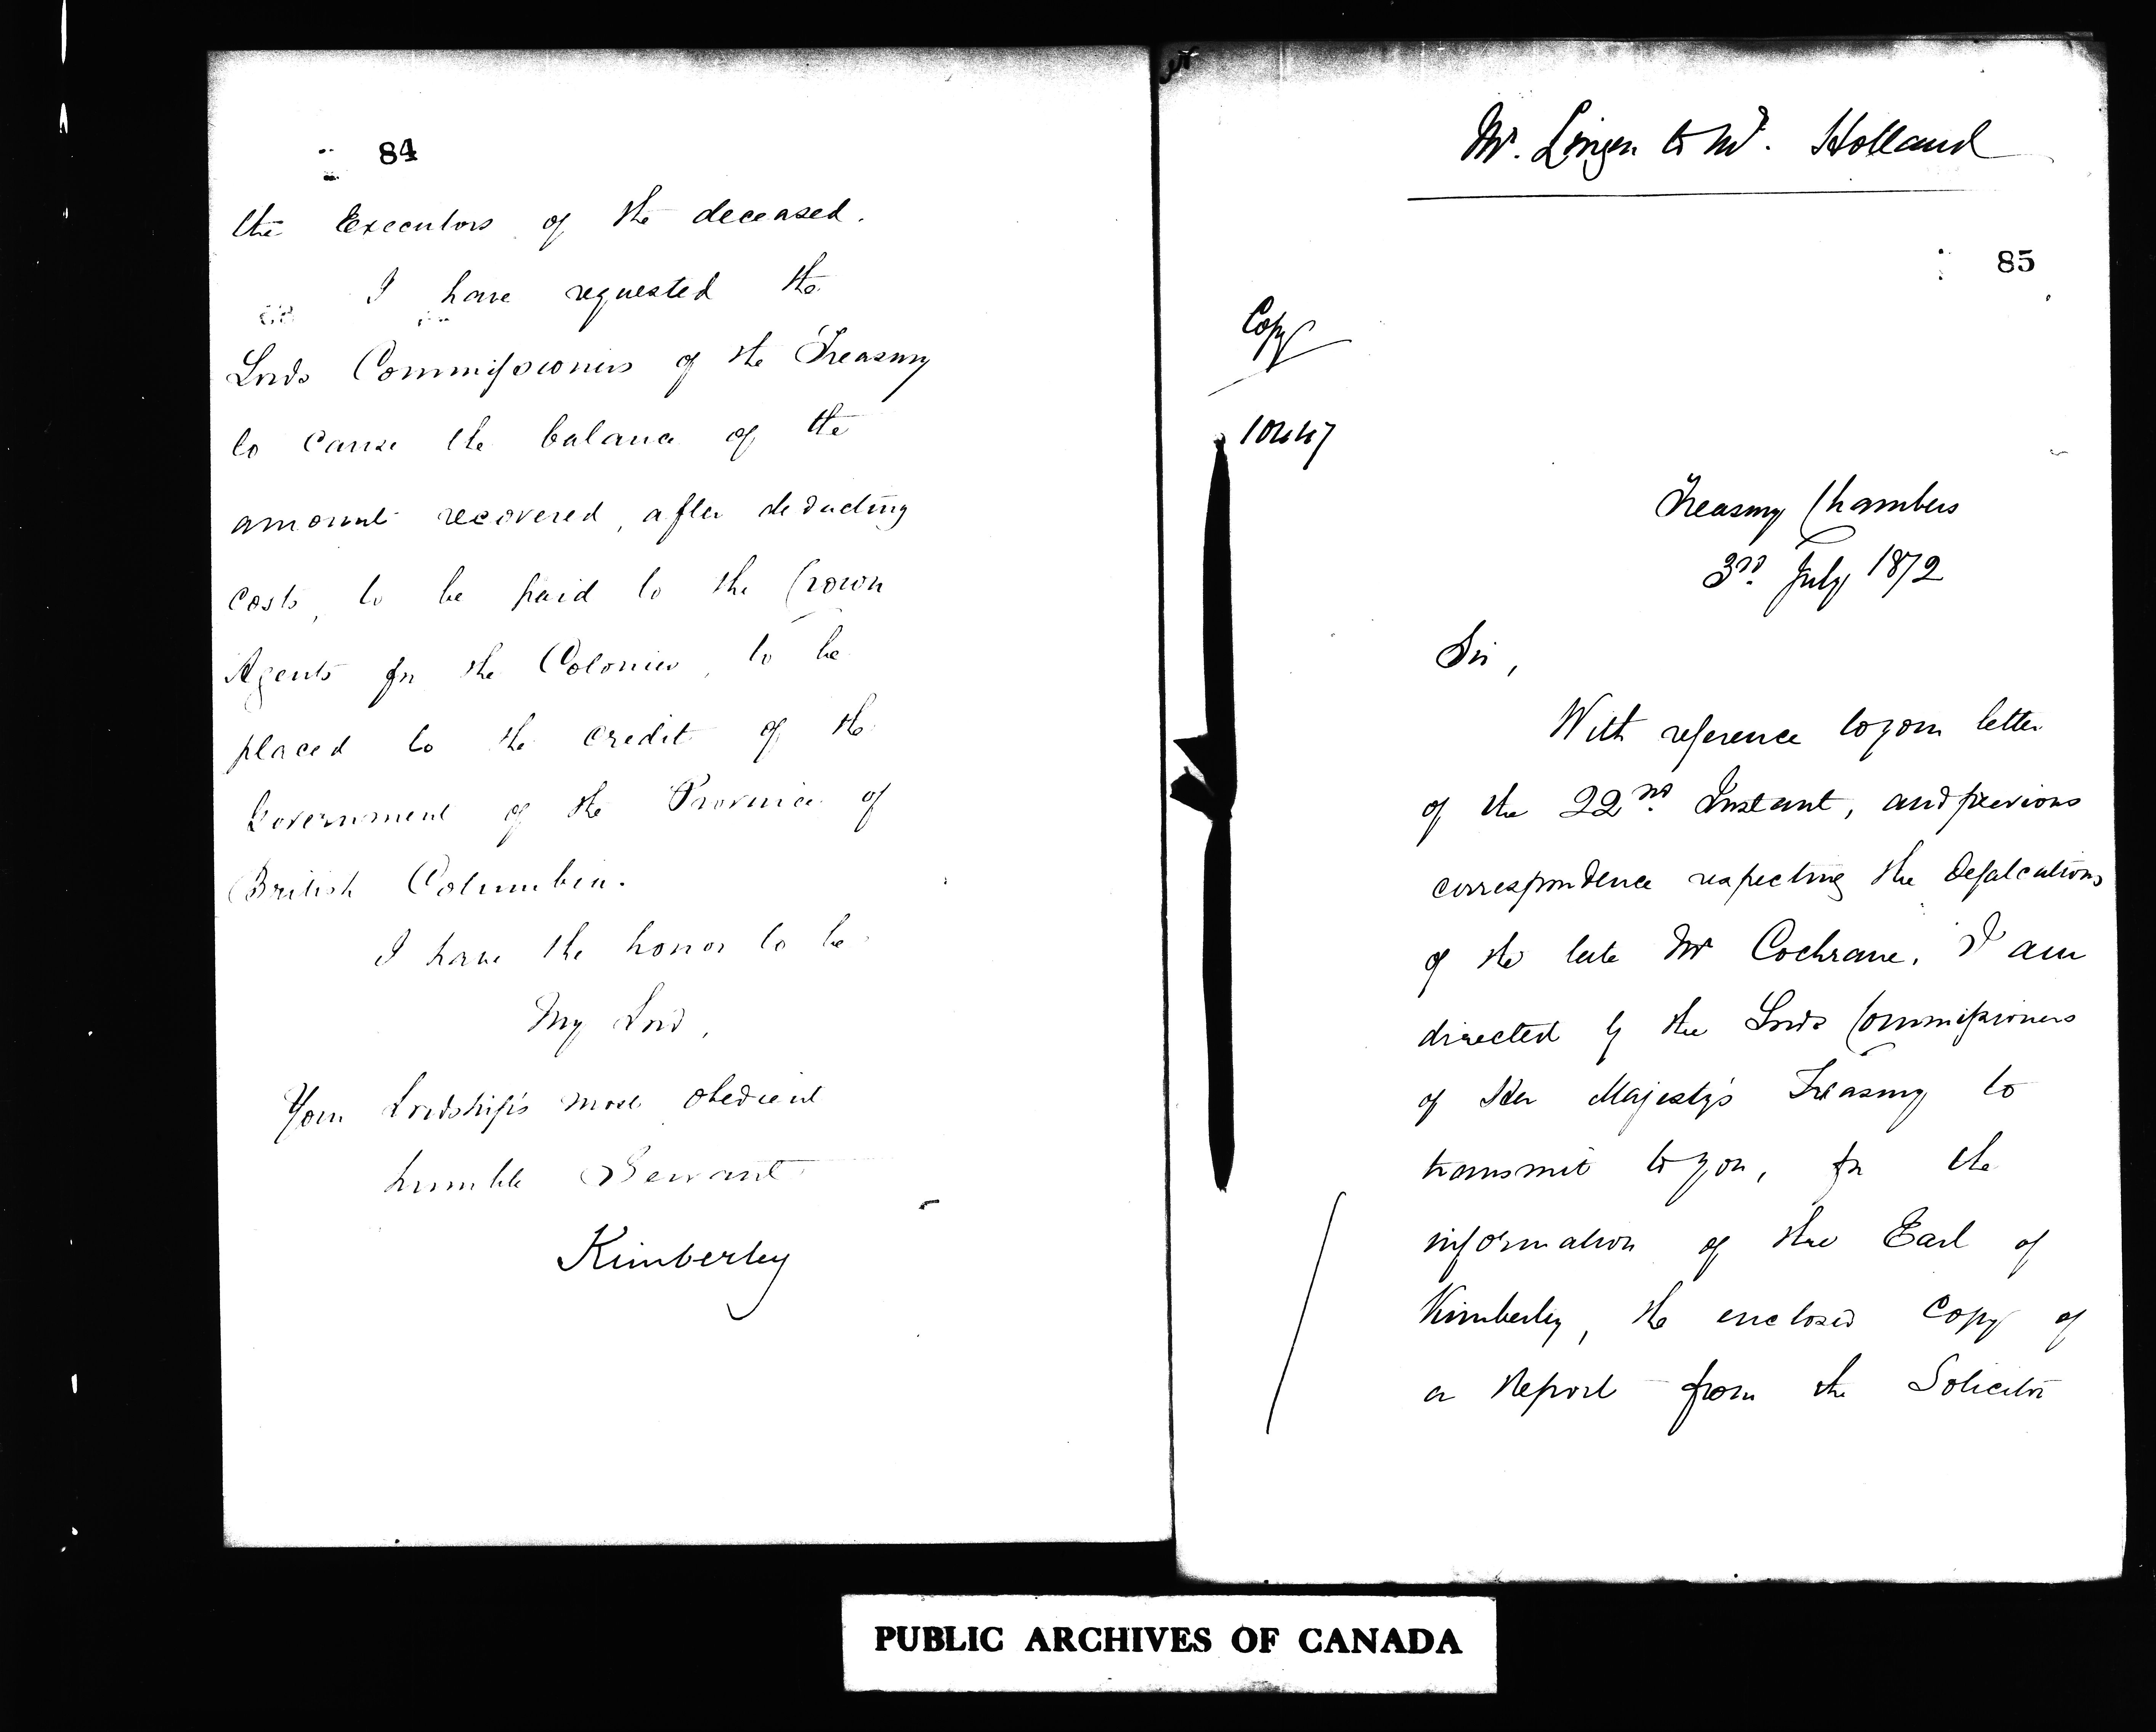 84
the Executors of the deceased.
I have requested the
Lords Commissioners of the Treasury
to cause the balance of the
amount recovered, after deducting
costs, to be paid to the Crown
Agents for the Colonies, to be
placed to the credit of the
Government of the Province of
British Columbia.
I have the honor to be
My Lord,
Your Lordship's most obedient
humble Servant
Kimberley
Mr. Lingen to Mr. Holland
85
Copy
Treasury Chambers
3rd July 1872
Sir,
With reference to your letter
of the 22nd Instant, and previous
correspondence respecting the Defalcations
of the late Mr Cochrane, I am
directed by the Lords Commissioners
of Her Majesty's Treasury to
transmit to you, for the
information of the Earl of
Kimberley, the enclosed Copy of
a Report from the Solicitor
PUBLIC ARCHIVES OF CANADA